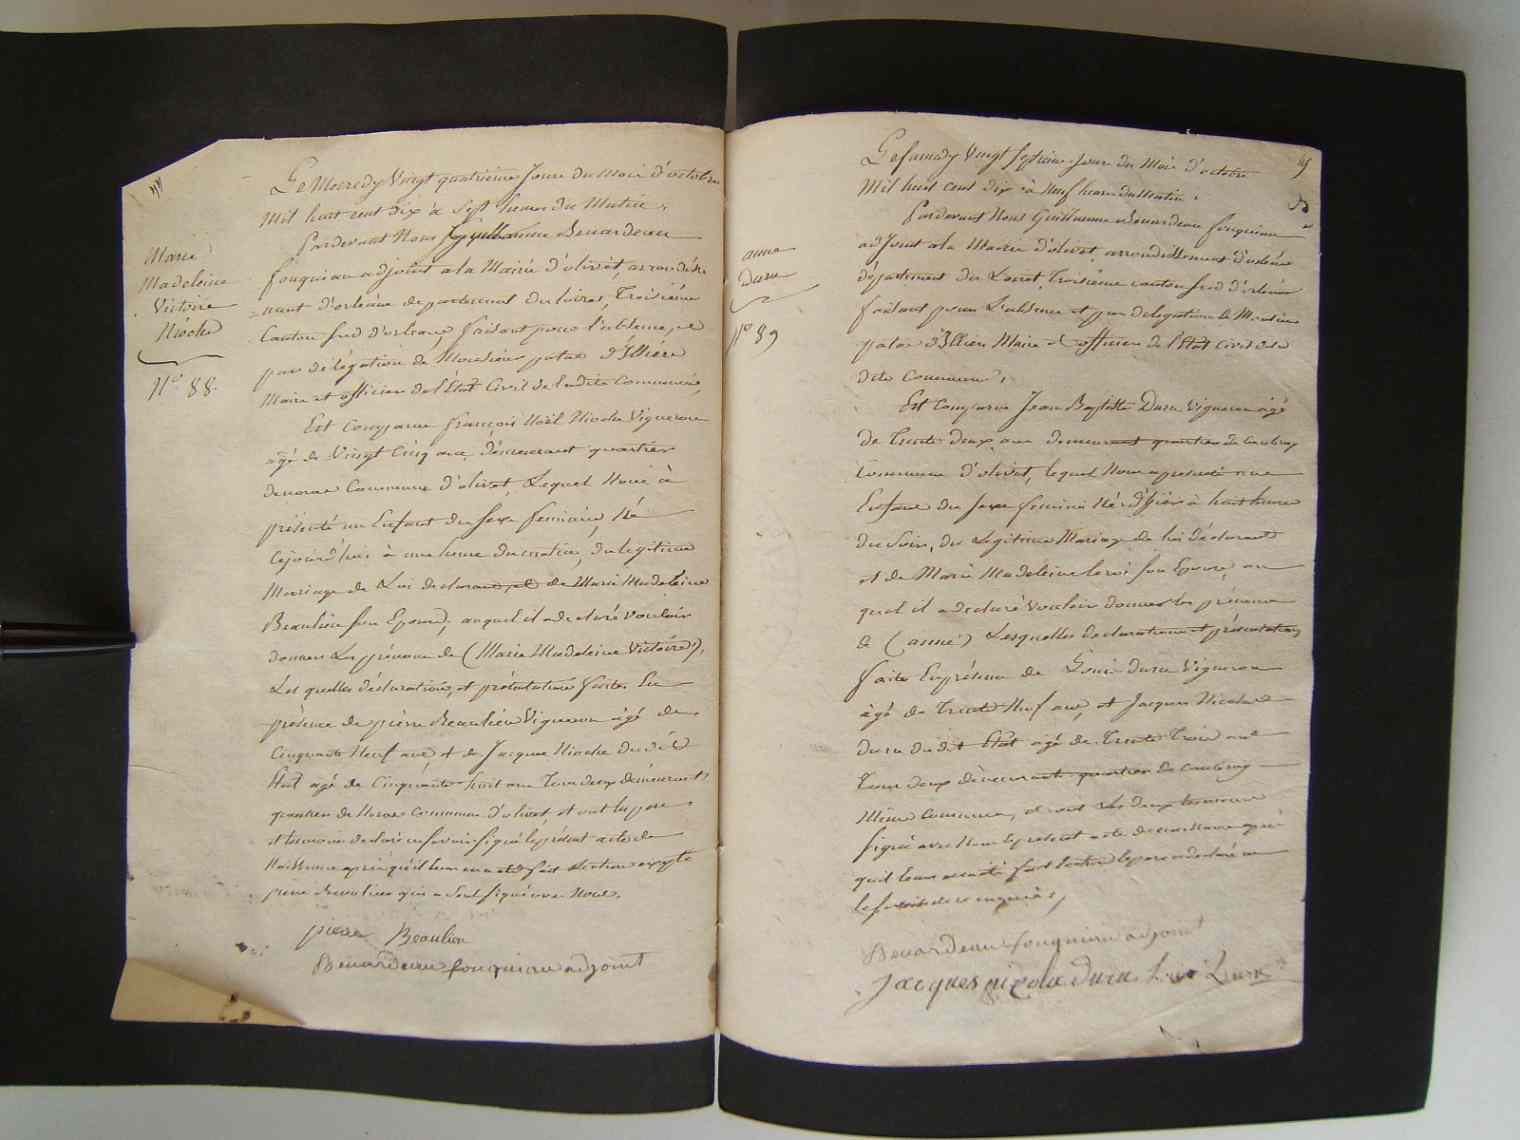 Marie
Madeleine
Victoire
Nioche
N° 88.
Le Mercredy Vingt quatrieme Jour du Mois d'octobre
Mil huit cent dix à Sept heures du Matin,
Pardevant Nous Guillaume Benardeau
fouquiau adjoint a la Mairie d'olivet, arrondisse
=ment d'orleans departement du loiret, Troisième
Canton sud d'orleans, faisant pour l'absence, et
par délégation de Monsieur patas d'Illiers
Maire et officier de l'État Civil de ladite Commune,
Est Comparu françois Noël Nioche Vigneron
âgé de Vingt Cinq ans, demeurant quartier
Commune d'olivet, Lequel Nous à
présenté un Enfant du sexe feminin, Né
cejourd'hui à une heure du matin, du legitime
Mariage de Lui declarant, et de Marie Madeleine
Beaulieu son Epouse, auquel il a declaré Vouloir
donner Les prénoms de (Marie Madeleine Victoire),
Les quelles déclaration, et présentation faites En
présence de pierre Beaulieu Vigneron âgé de
Cinquante Neuf ans, et de Jacques Nioche du dit
Etat agé de Cinquante huit ans Tous deux demeurant
quartier de Commune d'olivet, et ont le pere
et temoins declaré ne savoir signé le présent acte de
Naissance après qu'il leur en a été fait lecture excepté
pierre Beaulieu qui a seul signé avec Nous.
pierre Beaulieu
Benardeau fouquiau adjoint
anne
Duru
N° 89
Le samedy Vingt septieme Jour du Mois d'octobre
Mil huit cent dix à Neuf heures du Matin,
Pardevant Nous Guillaume Benardeau fouquiau
adjoint a la Mairie d'olivet, arrondissement d'orléans
département du Loiret, Troisième canton sud d'orleans
faisant pour L'absence et par delegation de Monsieur
patas d'Illiers Maire et officier de l'État Civil de la
dite Commune,
Est Comparu Jean Baptiste Duru Vigneron âgé
de Trente deux ans demeurant quartier de
Commune d'olivet, lequel Nous a presenté un
Enfant du sexe feminin Né d'hier à huit heures
du Soir, du Legitime Mariage de lui déclarant
et de Marie Madeleine leroi son Epouse, au
quel il a declaré Vouloir donner les prénoms
de (anne) Lesquelles declaration et présentation
faites En présence de Louis Duru Vigneron
âgé de Trente Neuf ans, et Jacques Nicolas
Duru du dit Etat agé de Trente Trois ans
Tous deux demeurant quartier de
Même Commune, et ont Les deux temoins
signé avec Nous le présent acte de naissance après
qu'il leur en a été fait lecture le pere a declaré ne
le savoir de ce enquis,
Benardeau fouquiau adjoint
Jacques nicolas Duru Louis Duru